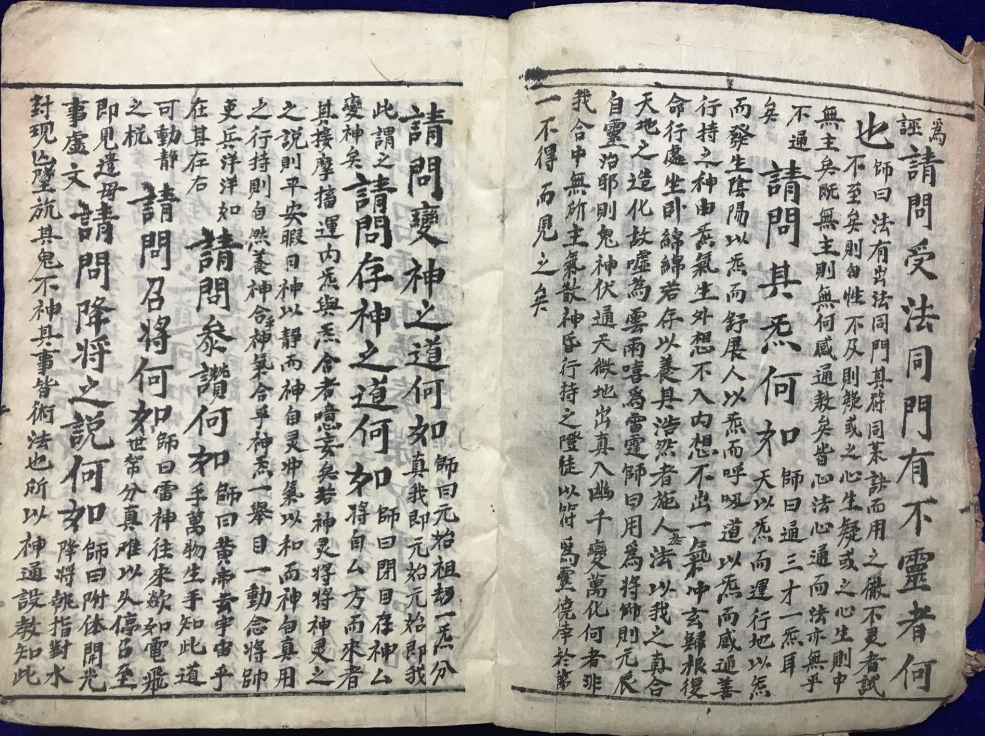 爲
誣請問受法同門有不靈者何
也師曰法有出法同門其符同某訣而用之徹不更者試
不至矣則自性不及則疑或之心生疑或之心生則中
無主矣既無主則無何感通教矣皆心法心通而法亦無乎
不通
矣請問其炁何如師曰通三才一炁耳
天以炁而運行地以炁
而發生陰陽以炁而舒展人以炁而呼吸道以炁而感通善
行持之神由炁氣生外想不入内想不出一氣冲玄歸根復
命行處坐卧綿綿若存以養其浩然者施人法以我之真合
天地之造化故噓為雲雨嘻爲雷霆師曰用爲將帥則元辰
自靈治邪則鬼神伏通天徹地出真入幽千變萬化何者非
我合中無所主氣散神昏行持之徒以符爲靈僥倖於萬
一不得而見之矣
請問變神之道何如師曰元始祖刼一炁分
真我即元始元始即我
此謂之請問存神之道何如師曰閉目存神厶
變神矣將自厶方而來者
其按摩擂運内炁與炁合者噫妄矣若神灵將將神灵之
之説則平安暇日神以静而神自灵冲氣以和而神自真用
之行持則自然養神合神氣合乎神炁一舉目一動念將帥
吏兵洋洋如請問叅讚何如師曰黄帝云宇宙乎
在其左右手萬物生手知此道
可動靜請問召將何如師曰雷神往來欻如電飛
之机世常分真难以久停召至
即見遣毋請問降將之説何如師曰附体開光
事虚文降將執指對水
對現厶墜旐其鬼不神其事皆術法也所以神通設教知此